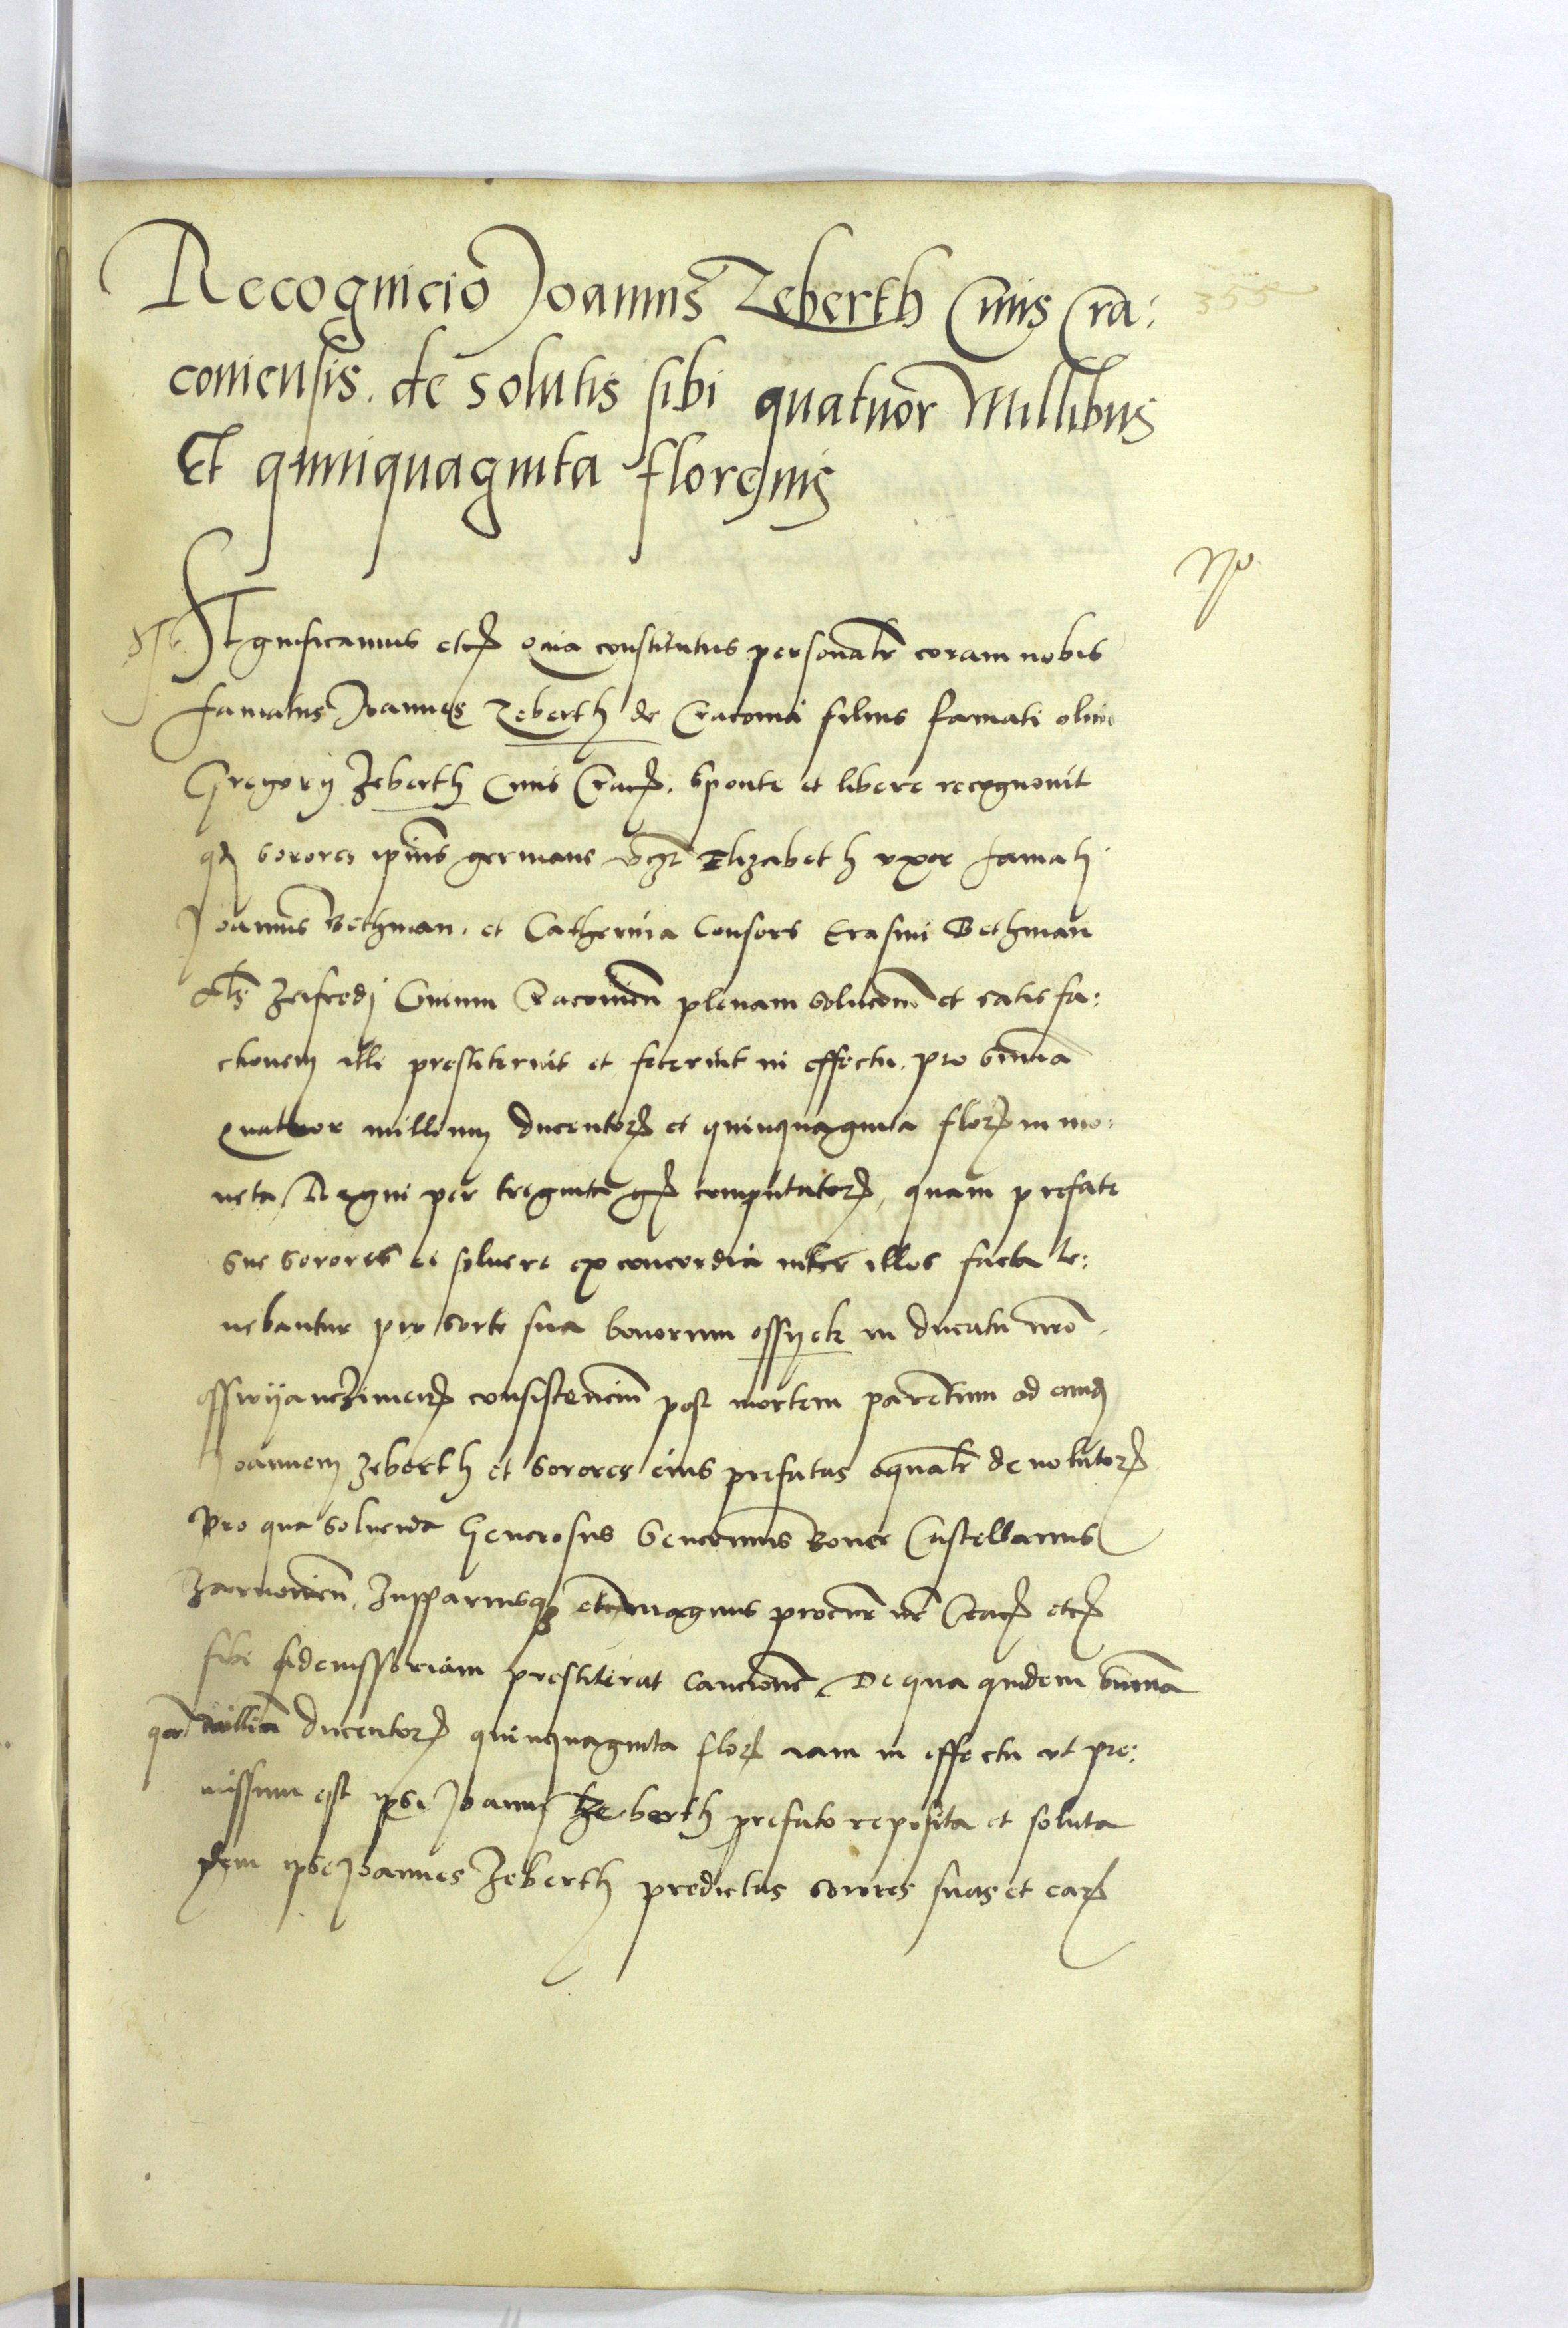 Recognicio Joannis Zeberth Civis Cra:
355
coviensis. de solutis sibi quatuor Millibus
Et quinquaginta florenis
Significamus etc Quia constitutus personalr coram nobis
famatus Joannes Zeberth de Cracovia filius famati olim
Gregorii Zeberth Civis Crac. sponte et libere recognovit
qd sorores ipius germane vczt Elizabeth uxor famati
Joannis Bethman. et Catherina Consors Erasmi Bethman
als Zeifredj Civium Cracovien plenam solucom et satis fa:
ctionem illi prestiterunt et fecerunt in effectu. pro suma
Quatuor millium ducentor et quinquaginta flor in mo:
neta Regni per triginta gr computator, quam prefate
sue sorores ei solvere ex concordia inter illos facta te:
nebantur pro sorte sua bonorum ossyek in ducatu nro
osswyanczimen consistencium post mortem parentum ad eund
Joannem Zeberth et sorores eius prefatas equalr devolutor
Pro qua solvenda Generosus Severinus Boner Castellanus
Zarnovien, Zuppariusq et magnus procur nr Crac etc
sibi fideiussoriam prestiterat caucionem. De qua quidem summa
qor millia ducentor quinquaginta flor iam in effectu ut pre:
missum est ipsi Joanni Zeberth prefato reposita et soluta
idem ipse Joannes Zeberth predictas sorores suas et ear